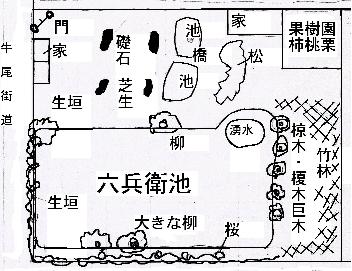 牛尾街道
門
家
礎石
芝生
池
橋
池
家
松
果樹園
柿桃栗
生垣
柳
湧水
椋木・榎木巨木
竹林
六兵衛池
生垣
大きな柳
桜